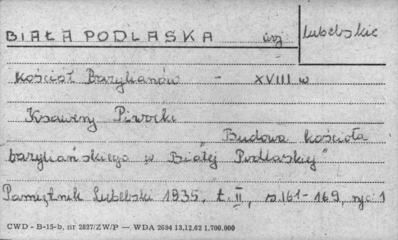 BIAŁA PODLASKA woj lubelskie
Kościół Bazylianów - XVIII w
Ksawery Piwocki
"Budowa kościoła
bazyliańskiego w Białej Podlaskiej"
Pamiętnik Lubelski 1935, t. II, s. 161-169, ryc. 1
CWD - B-15-b, nr 2827/ZW/P — WDA 2694 13.12.62 1.700.000